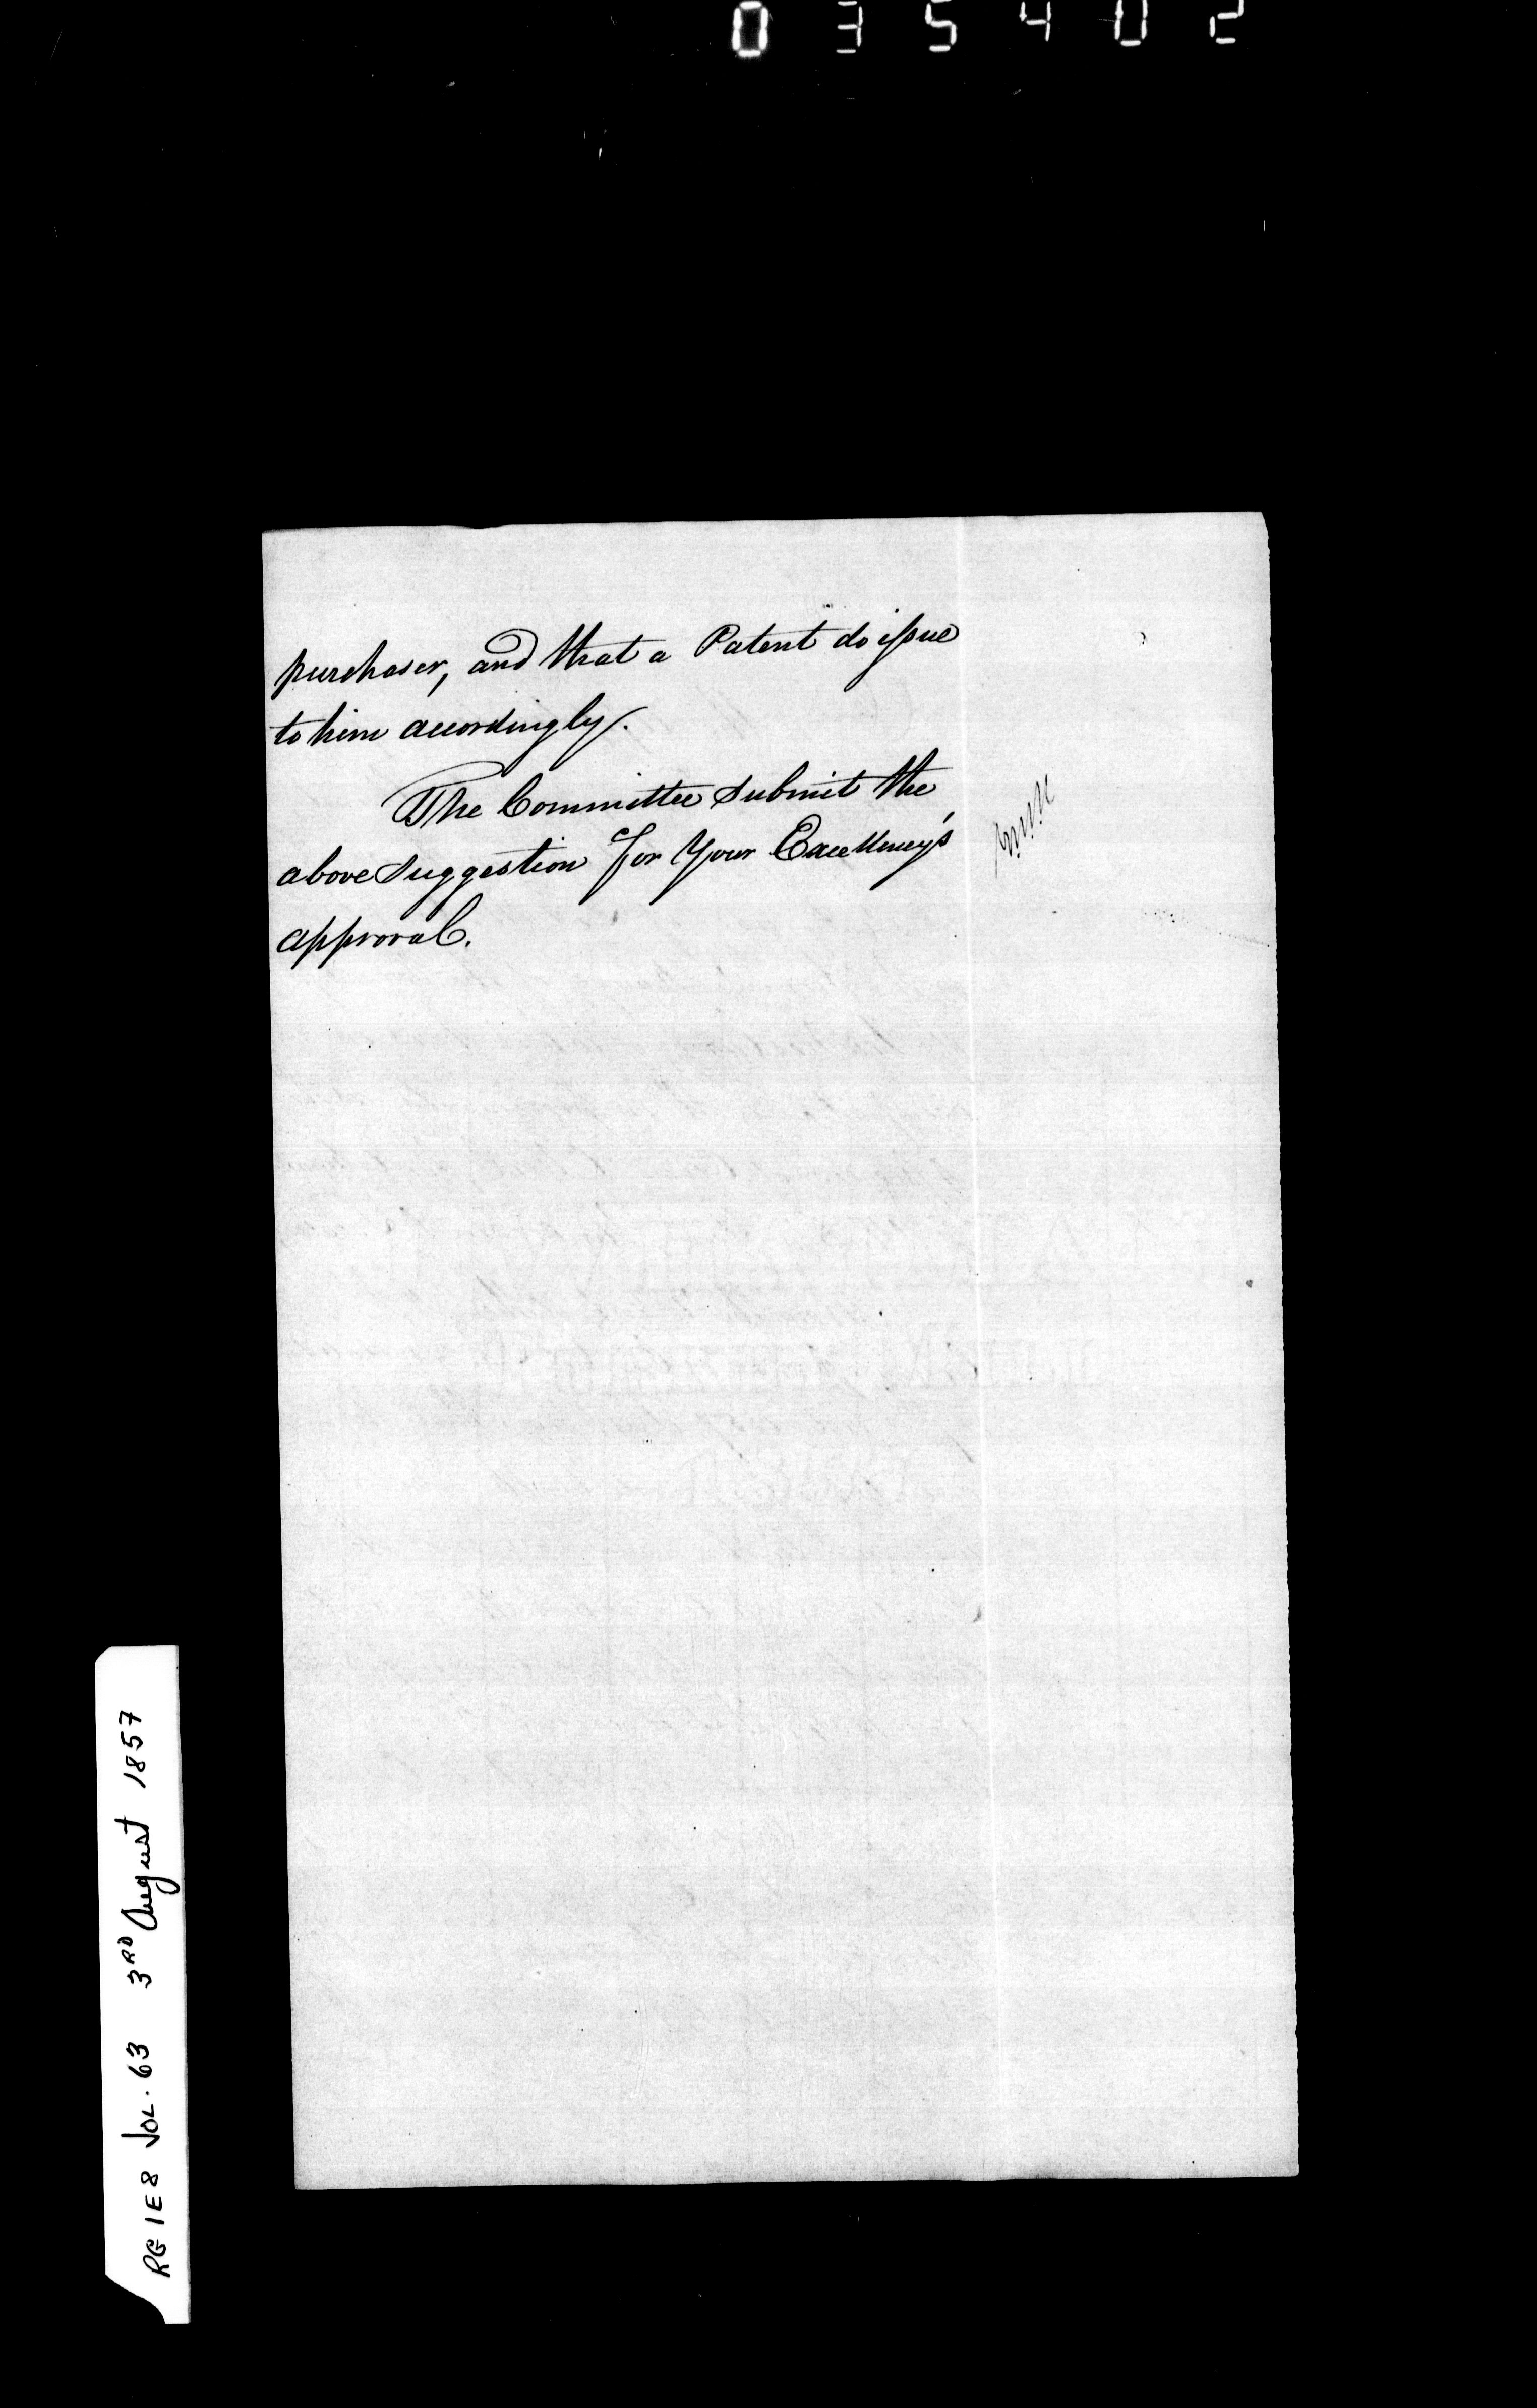 035402
purchaser, and that a Patent do issue
to him accordingly.
The Committee submit the
above suggestion for Your Excellency's
approval.
RG 1 E8 VOL. 63 3RD August 1857